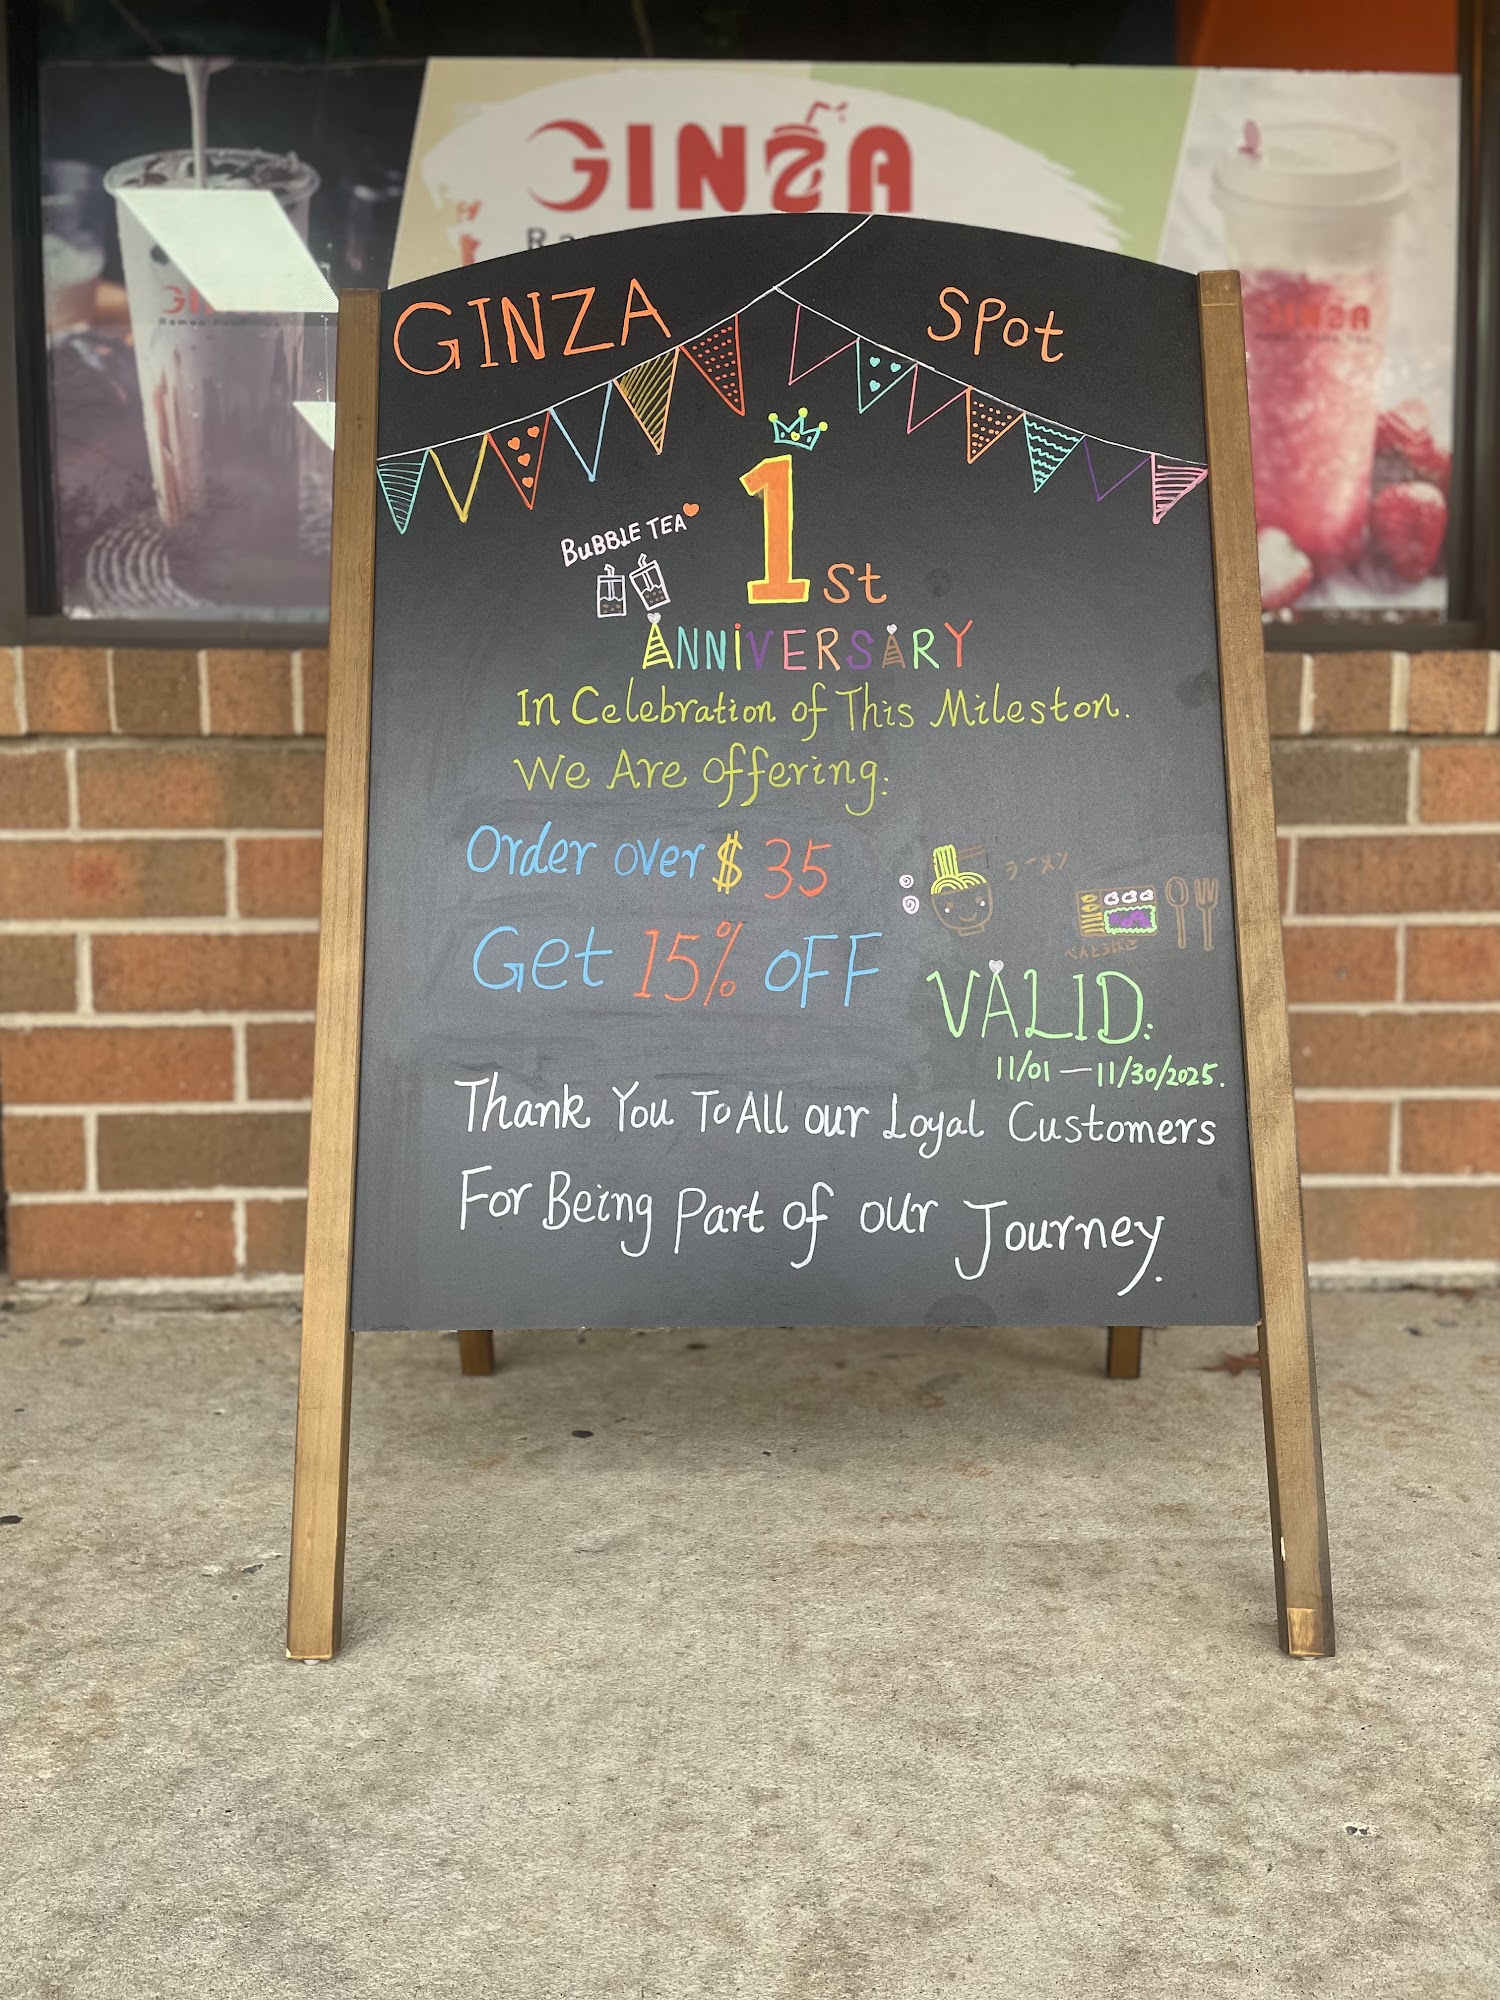 GINZA
GINZA SPot
BuBBLE TEA
1st
ANNiVERSARY
In Celebration of This Mileston.
We Are offering:
Order over $ 35
ラーメン
べんとうばこ
Get 15% oFF
VALID:
11/01 — 11/30/2025.
Thank You To All our Loyal Customers
For Being Part of our Journey.